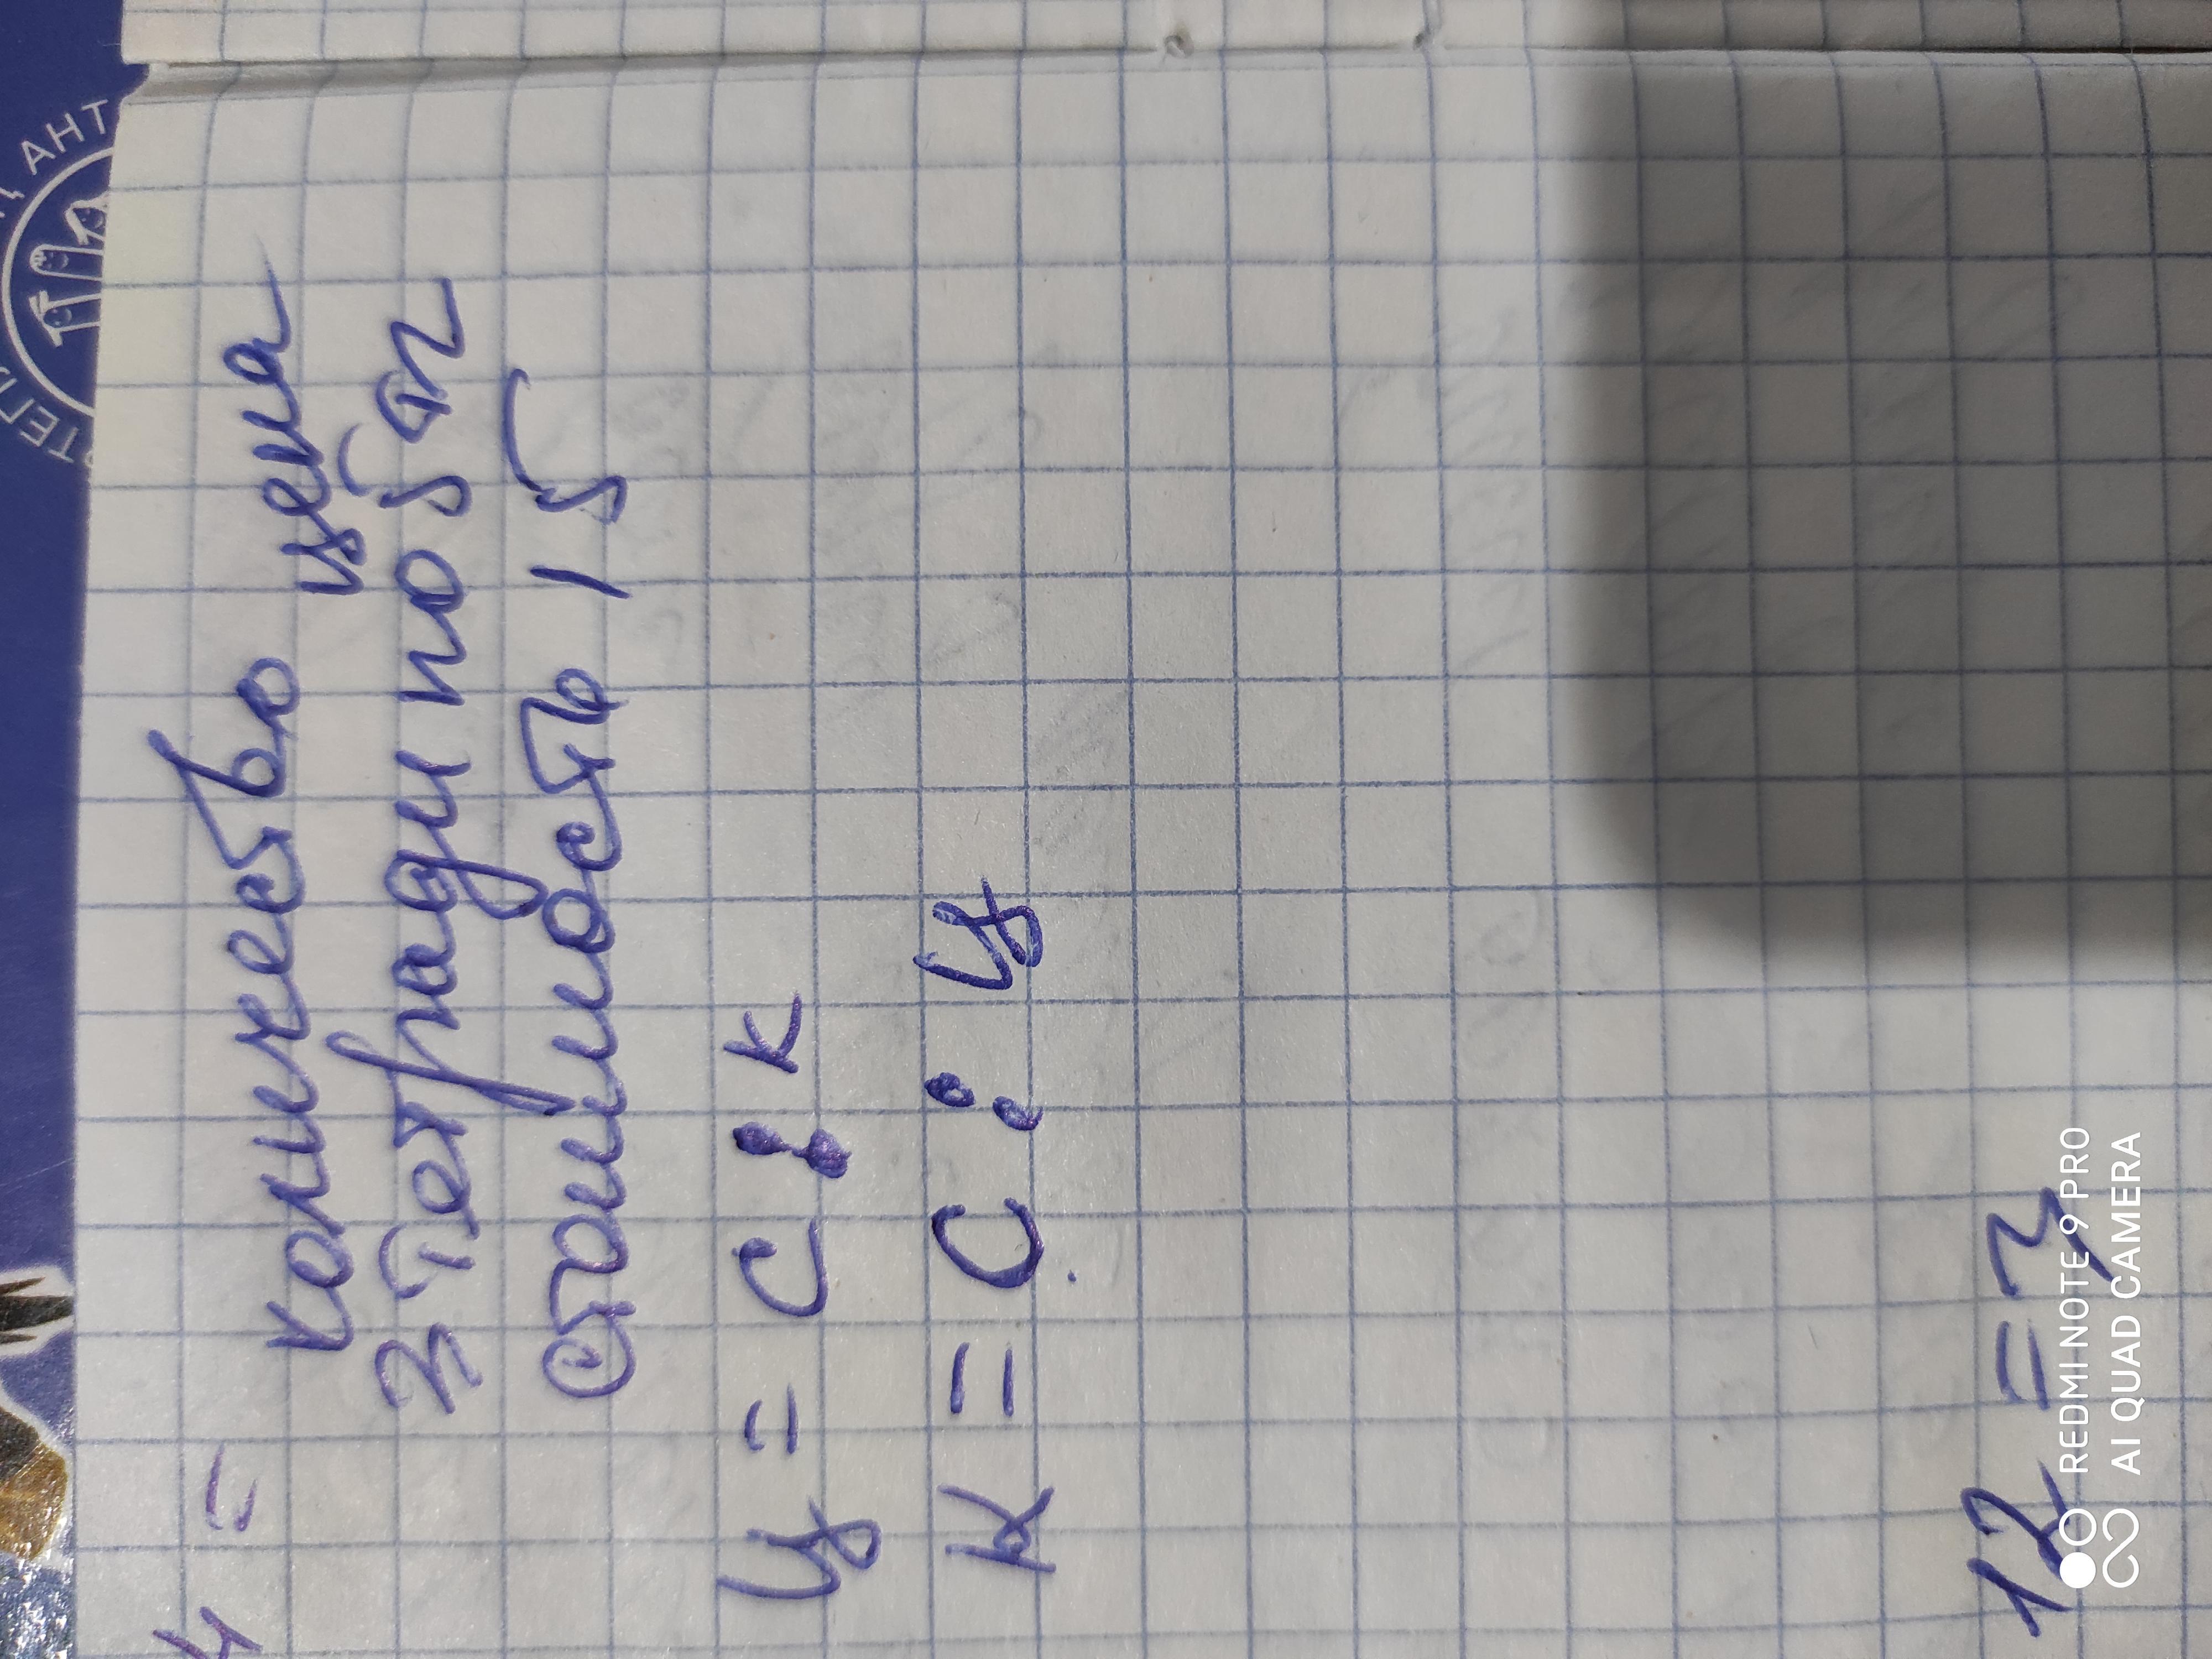 4 =
количество цена
3 тетради по 5 тг
стоимость 15
ц = с : к
К = С : ц
12 = 3
REDMI NOTE 9 PRO
AI QUAD CAMERA